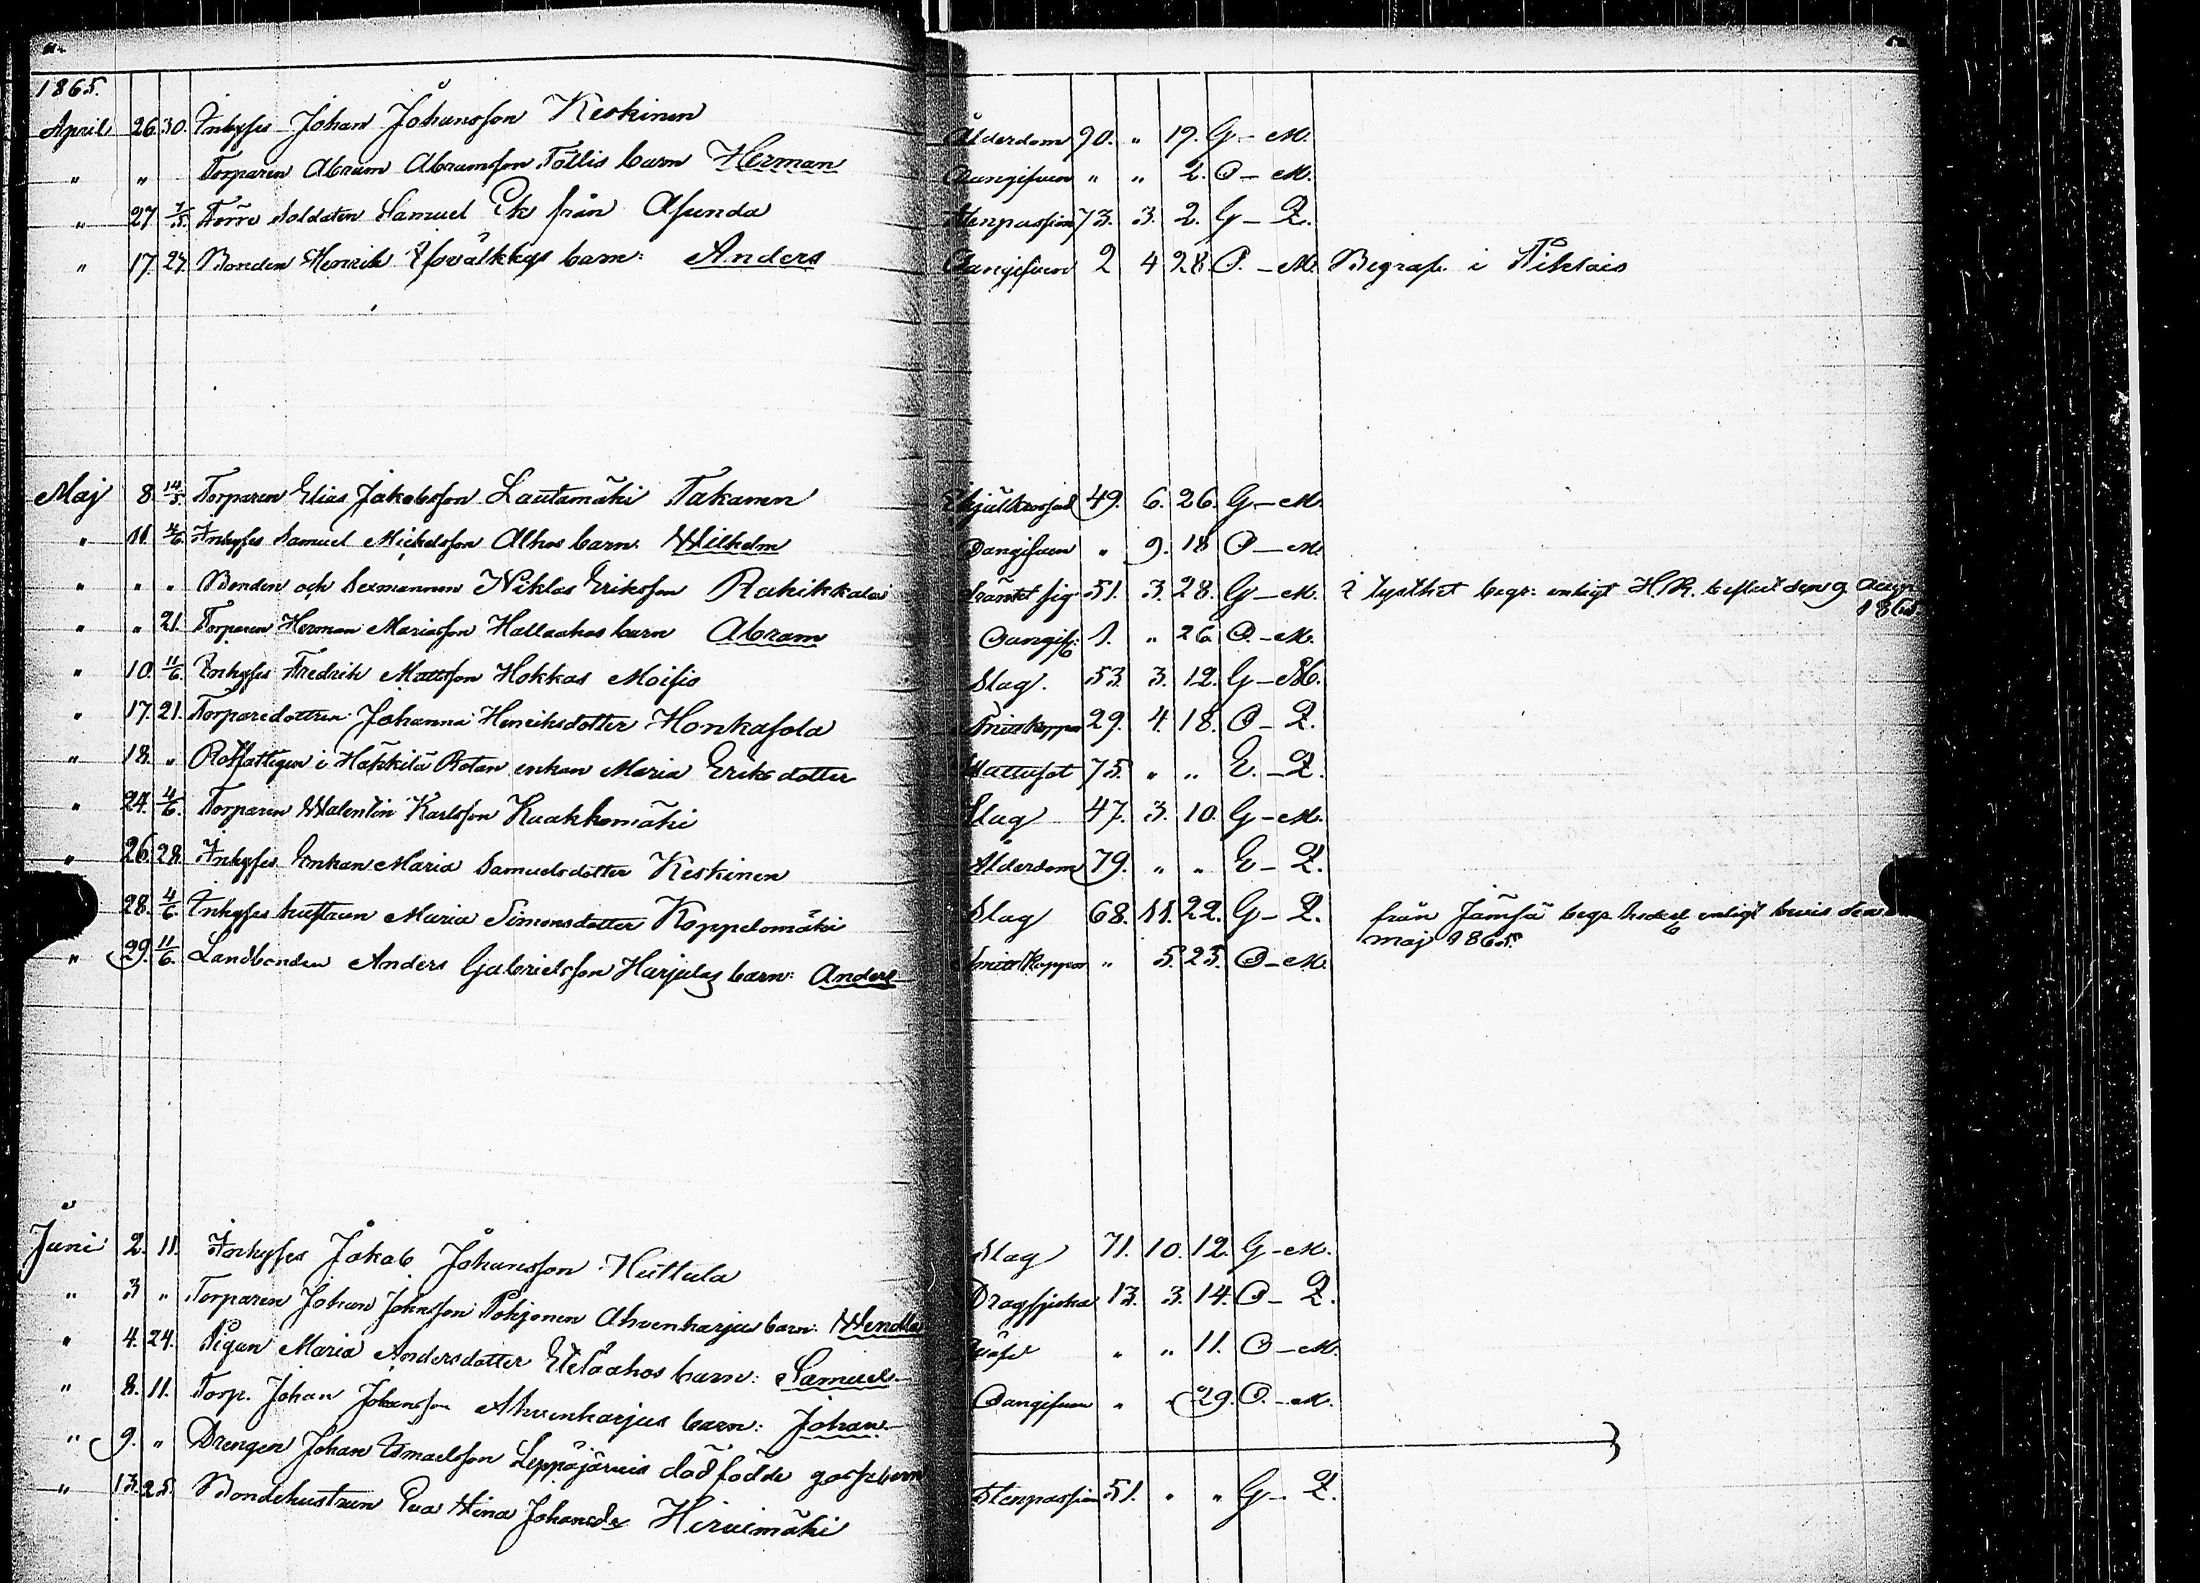 1865.
April 26. 30. Inhyses Johan Johansson Keskinen Ålderdom 90. " 19. G - M.
" " Torparen Abram Abramsson Töllis barn Herman Oangifven " " 2. O - M.
" 27 7/5 Förre Soldaten Samuel Ek från Asunda Stenpassion 73. 3. 2. G - Q.
" 17. 27. Bonden Henrik barn: Anders Oangifven 2 4 28. O. - M. Begrafv. i
Maj 8. 14/5. Torparen Elias Jakobsson Lautamäki Takanen 49. 6. 26. G - M.
" 11. 4/6. Inhyses Samuel Mickelsson Alhos barn. Wilhelm Oangifven " 9. 18 O - M.
" " " Bonden och Sexmannen Niklas Eriksson Rahikkala Dränkt sig 51. 3. 28. G - M. i tysthet begr: enligt H.R. beslut den 9
1865
" " 21. Torparen Herman Mariasson Hallaahos barn Abram Oangifv: 1. " 26. O. - M.
" 10. 11/6. Inhyses Fredrik Mattsson Hokkas Moisio Slag. 53. 3. 12. G - M.
" 17. 21. Torparedottren Johanna Henriksdotter Honkasola Smittkoppor 29. 4. 18. O - Q.
" 18. " Rotfattigen i Häkkilä Rotan enkan Maria Eriksdotter Vattusot 75. " " E. - Q.
" 24. 4/6. Torparen Walentin Karlsson Kuakkomäki Slag 47. 3. 10. G - M.
" 26. 28. Inhyses Enkan Maria Samuelsdotter Keskinen Ålderdom 79. " " E - Q.
28. 4/6. Inhyses hustrun Maria Simonsdotter Koppelomäki Slag 68. 11. 22. G - Q. från Jämsä begr. enligt bevis den
maj 1865.
" 29. 11/6. Landbonden Anders Gabrielsson Harjulas barn: Anders Smittkoppor " 5. 25. O - M.
Juni 2. 11. Inhyses Jakob Johansson Huttula Slag 71. 10. 12. G - M.
" 3 " Torparen Johan Johnsson Pohjonen Ahvenharjus barn: Wendla Dragsjuka 13. 3. 14. O - Q.
" 4. 24. Pigan Maria Andersdotter Eteläahos barn: Samuel " " 11. O - M.
" 8. 11. Torp. Johan Johansson Ahvenharjus barn: Johan Oangifven " " 29. O. - M.
" 9. " Drengen Johan Ismaelsson Leppäjärvis dödfödde gossebarn
" 13. 25. Bondehustrun Eva Stina Johansdr Hirvimäki Stenpassion 51. " " G - Q.